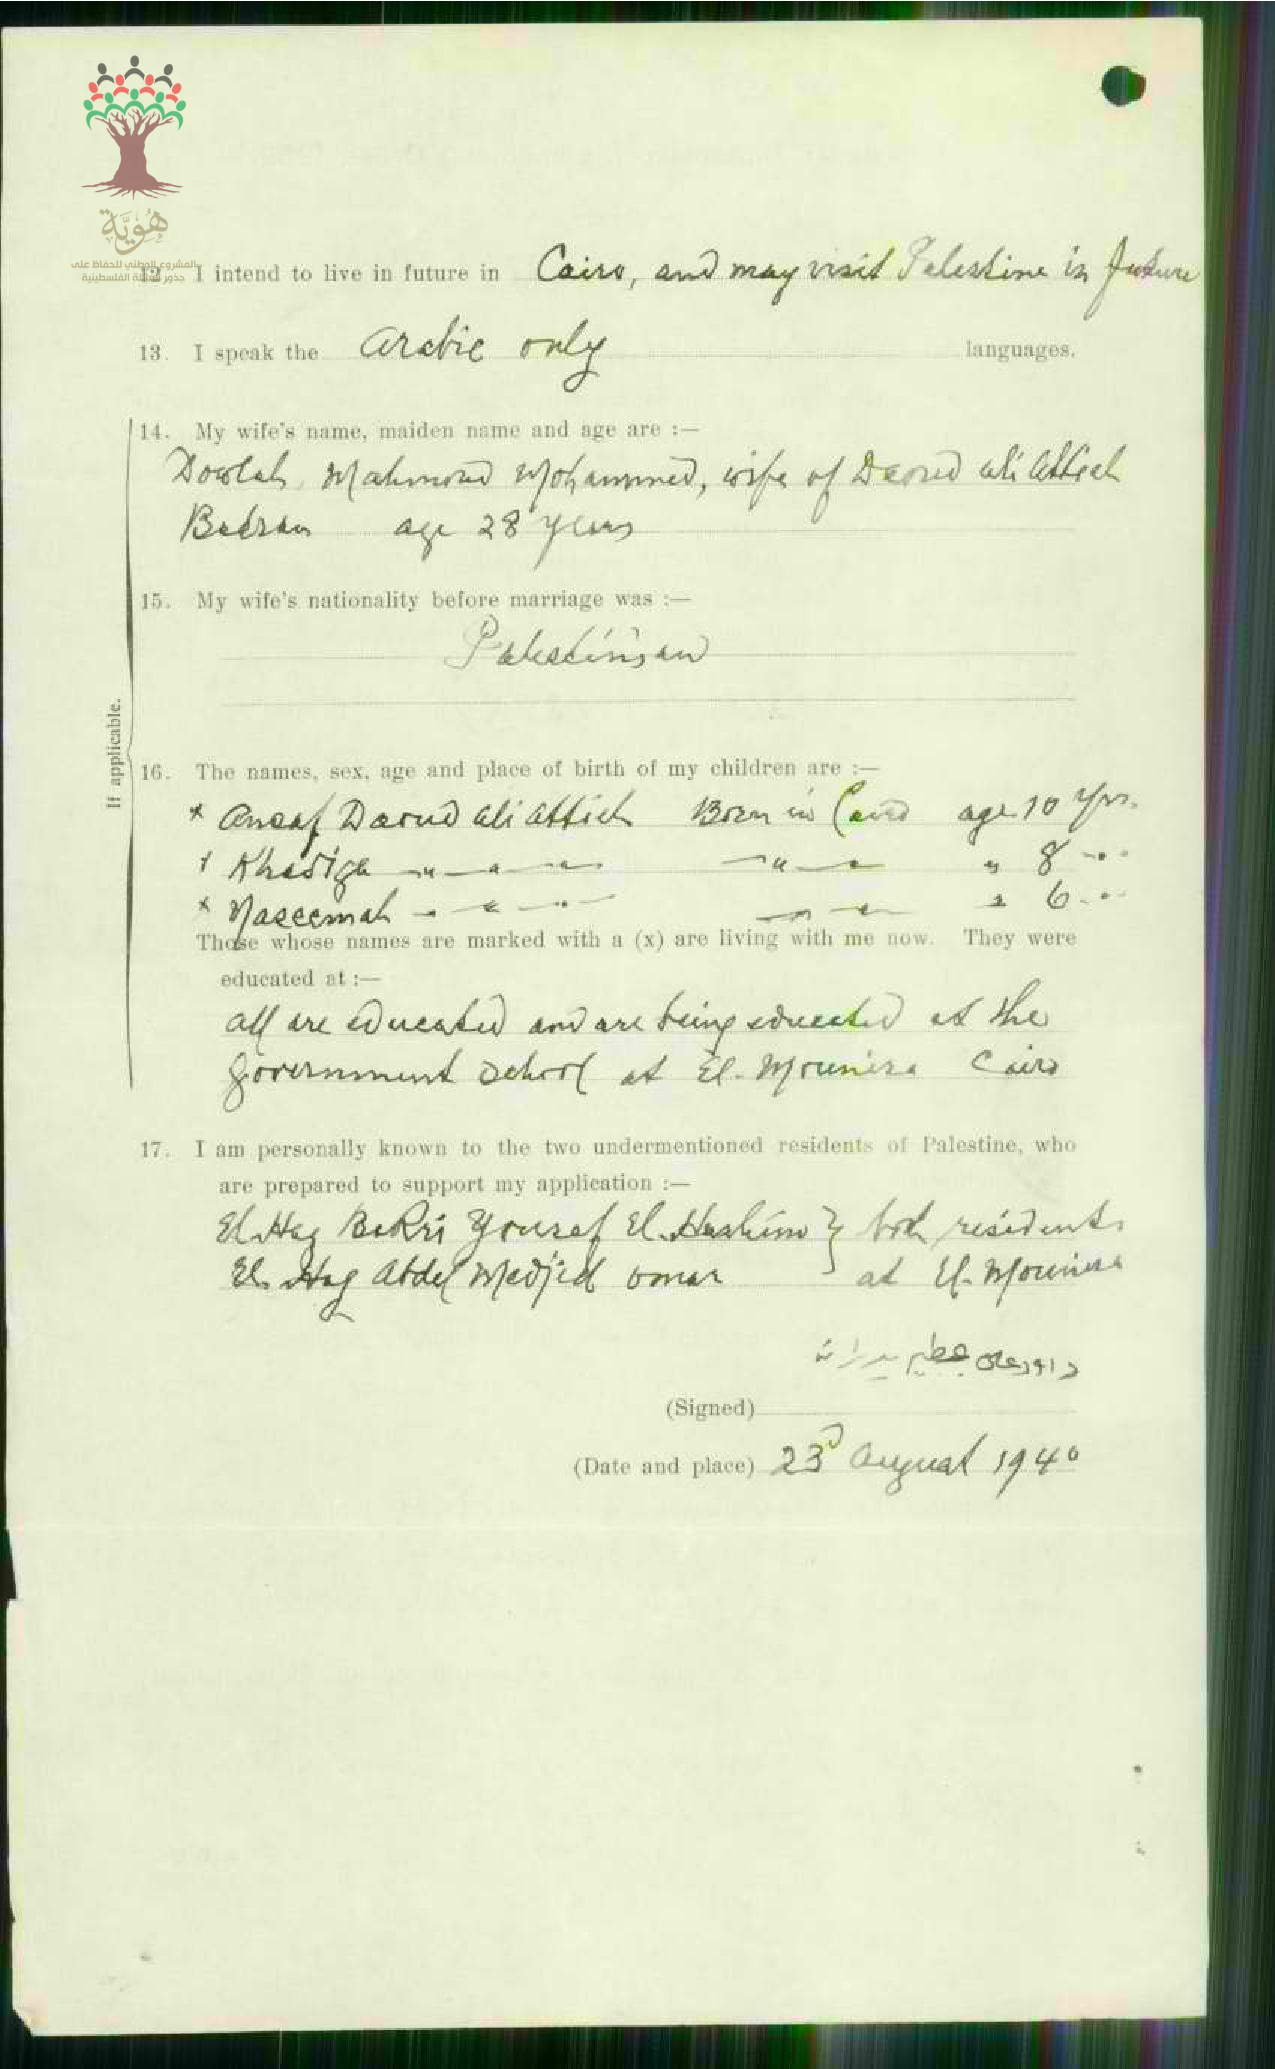 هُوِيَّة
المشروع الوطني للحفاظ على
جذور العائلة الفلسطينية
12. I intend to live in future in Cairo, and may visit Palestine in future
13. I speak the Arabic only languages.
14. My wife's name, maiden name and age are :—
Dowlah Mahmoud Mohammed, wife of Daoud Ali Attieh
Badran age 28 years
15. My wife's nationality before marriage was :—
Palestinian
If applicable.
16. The names, sex, age and place of birth of my children are :—
x Ansaf Daoud Ali Attieh Born in Cairo age 10 yrs.
x Khadiga " " " " " " 8 "
x Naseemah " " " " " " 6 "
Those whose names are marked with a (x) are living with me now. They were
educated at :—
All are educated and are being educated at the
Government School at El-Mounira Cairo
17. I am personally known to the two undermentioned residents of Palestine, who
are prepared to support my application :—
El-Hag Bakri Yousef El-Hashim } both residents
El-Hag Abdel Medjid Omar } at El-Mounira
داود علي عطيه بدران
(Signed)
(Date and place) 23d August 1940